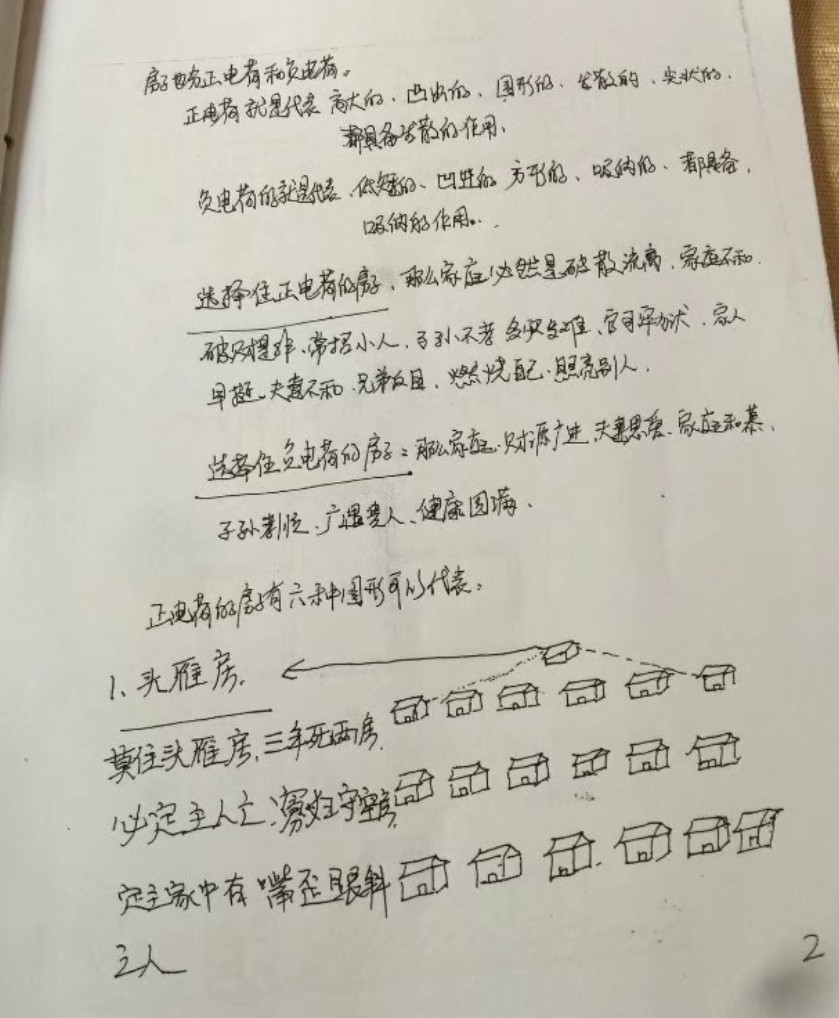 房子也分正电荷和负电荷。
正电荷就是代表 高大的、凸出的、圆形的、发散的、尖状的、
都具备发散的作用、
负电荷的就是代表、低矮的、凹进的 方形的、吸纳的、都具备、
吸纳的作用。
选择住正电荷的房子、那么家庭必然是破散流离、家庭不和、
破财损非、常招小人、子孙不孝 多灾多难、官司牢狱、家人
早逝、夫妻不和、兄弟反目、燃烧自己、照亮别人、
选择住负电荷的房子：那么家庭、财源广进、夫妻恩爱、家庭和慕、
子孙孝顺、广遇贵人、健康圆满、
正电荷的房子有六种图形可以代表：
1、头雁房、
莫住头雁房、三年死两房、
必定主人亡、寡妇守空房、
定主家中有 嘴歪眼斜
之人
2